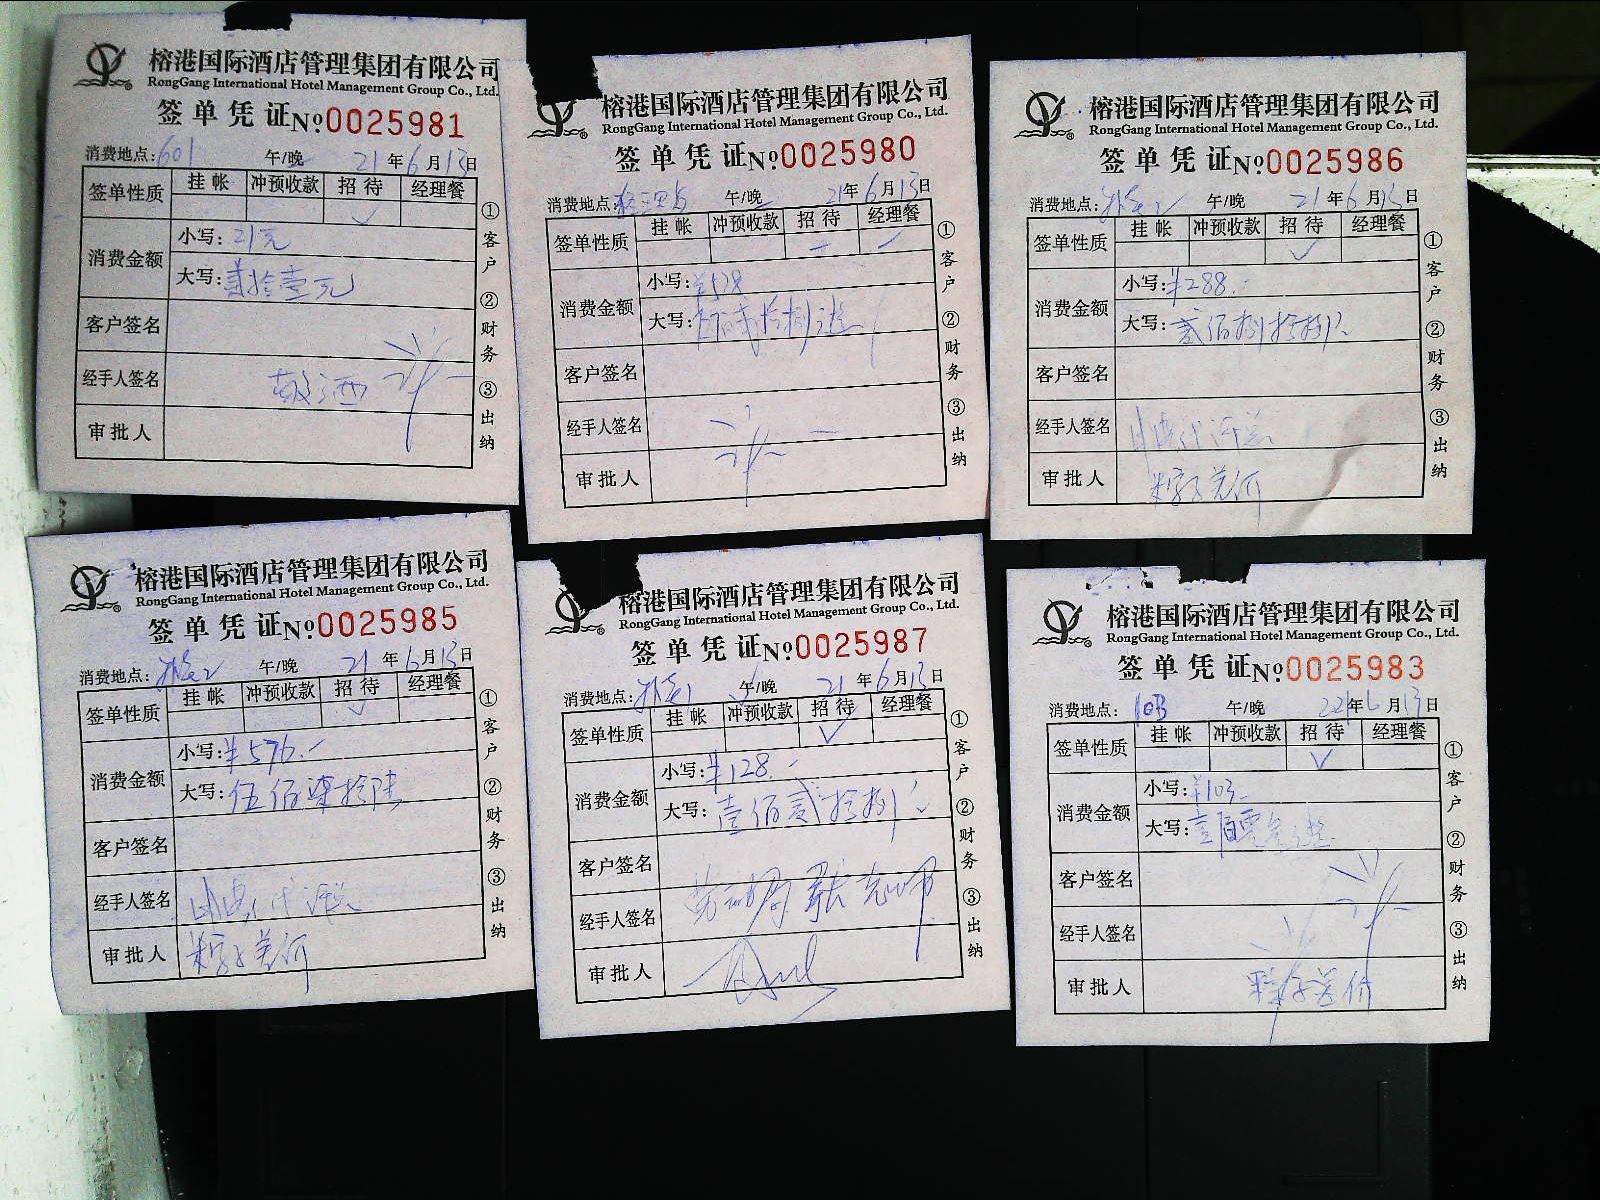 榕港国际酒店管理集团有限公司
RongGang International Hotel Management Group Co., Ltd.
签单凭证 №0025981
消费地点:601 午/晚 21年6月13日
签单性质 挂帐 冲预收款 招待 经理餐
✓
消费金额 小写:21元
大写:贰拾壹元
客户签名
经手人签名 敬酒
审批人
①客户 ②财务 ③出纳
榕港国际酒店管理集团有限公司
RongGang International Hotel Management Group Co., Ltd.
签单凭证 №0025980
消费地点: 午/晚 21年6月13日
签单性质 挂帐 冲预收款 招待 经理餐
消费金额 小写:¥528
大写:伍佰贰拾捌元
客户签名
经手人签名
审批人
①客户 ②财务 ③出纳
榕港国际酒店管理集团有限公司
RongGang International Hotel Management Group Co., Ltd.
签单凭证 №0025986
消费地点: 午/晚 21年6月13日
签单性质 挂帐 冲预收款 招待 经理餐
✓
消费金额 小写:¥288.-
大写:贰佰捌拾捌
客户签名
经手人签名
审批人 粽子差价
①客户 ②财务 ③出纳
榕港国际酒店管理集团有限公司
RongGang International Hotel Management Group Co., Ltd.
签单凭证 №0025985
消费地点: 午/晚 21年6月13日
签单性质 挂帐 冲预收款 招待 经理餐
✓
消费金额 小写:¥576.-
大写:伍佰柒拾陆
客户签名
经手人签名
审批人 粽子差价
①客户 ②财务 ③出纳
榕港国际酒店管理集团有限公司
RongGang International Hotel Management Group Co., Ltd.
签单凭证 №0025987
消费地点: 午/晚 21年6月13日
签单性质 挂帐 冲预收款 招待 经理餐
✓
消费金额 小写:¥128.-
大写:壹佰贰拾捌
客户签名
经手人签名
审批人
①客户 ②财务 ③出纳
榕港国际酒店管理集团有限公司
RongGang International Hotel Management Group Co., Ltd.
签单凭证 №0025983
消费地点: 午/晚 22年6月13日
签单性质 挂帐 冲预收款 招待 经理餐
✓
消费金额 小写:¥103.-
大写:壹佰零叁元
客户签名
经手人签名
审批人 粽子差价
①客户 ②财务 ③出纳